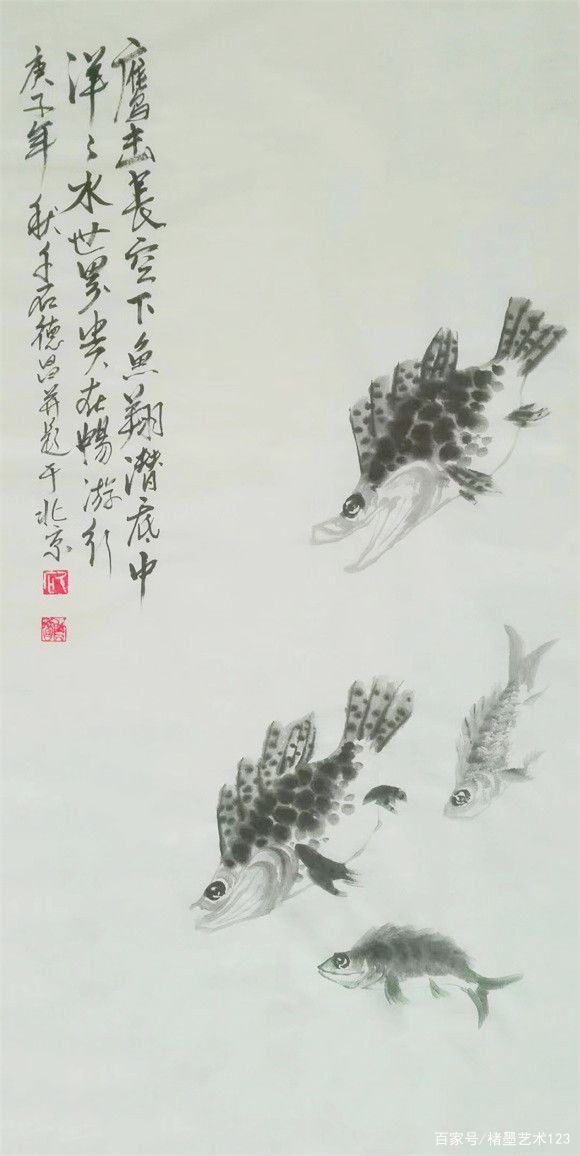 鷹击長空下魚翔潜底中
洋々水世界尖在暢游行
庚子年 秋手石德昌并题于北京
百家号/楮墨艺术123